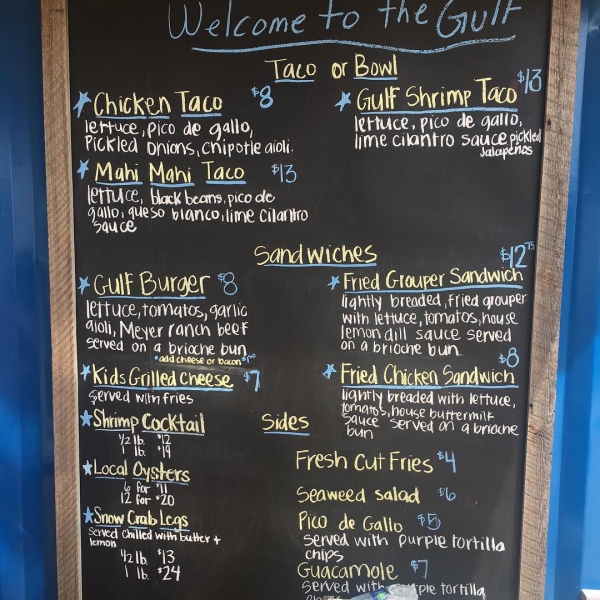 Welcome to the Gulf
Taco or Bowl
Chicken Taco $8
lettuce, pico de gallo,
Pickled onions, chipotle aioli.
Mahi Mahi Taco $13
lettuce, black beans, pico de
gallo, queso blanco, lime cilantro
sauce
Gulf Shrimp Taco $13
lettuce, pico de gallo,
lime cilantro sauce pickled
Jalapeños
Sandwiches
Gulf Burger $8
lettuce, tomatos, garlic
aioli, Meyer ranch beef
served on a brioche bun
*add cheese or bacon
Kids Grilled Cheese $7
served with fries
Shrimp Cocktail
1/2 lb. $12
1 lb. $19
Local Oysters
6 for $11
12 for $20
Snow Crab Legs
served chilled with butter +
lemon
1/2 lb. $13
1 lb. $24
$12.75
Fried Grouper Sandwich
lightly breaded, fried grouper
with lettuce, tomatos, house
lemon dill sauce served
on a brioche bun
$8
Fried Chicken Sandwich
lightly breaded with lettuce,
tomatos, house buttermilk
sauce served on a brioche
bun
Sides
Fresh Cut Fries $4
Seaweed salad $6
Pico de Gallo $5
served with purple tortilla
chips
Guacamole $7
served with purple tortilla